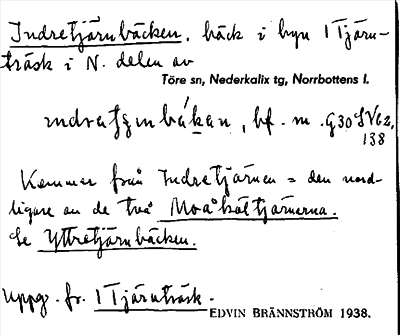 Indretjärnbäcken, bäck i byn 1 Tjärn-
träsk i N. delen av
Töre sn, Nederkalix tg, Norrbottens l.
bf. m. G30SV62,
138
Kommer från Indretjärnen = den nord-
ligare av de två Moåkåltjärnerna.
Se Yttretjärnbäcken.
Uppg. fr. 1 Tjärnträsk.
EDVIN BRÄNNSTRÖM 1938.